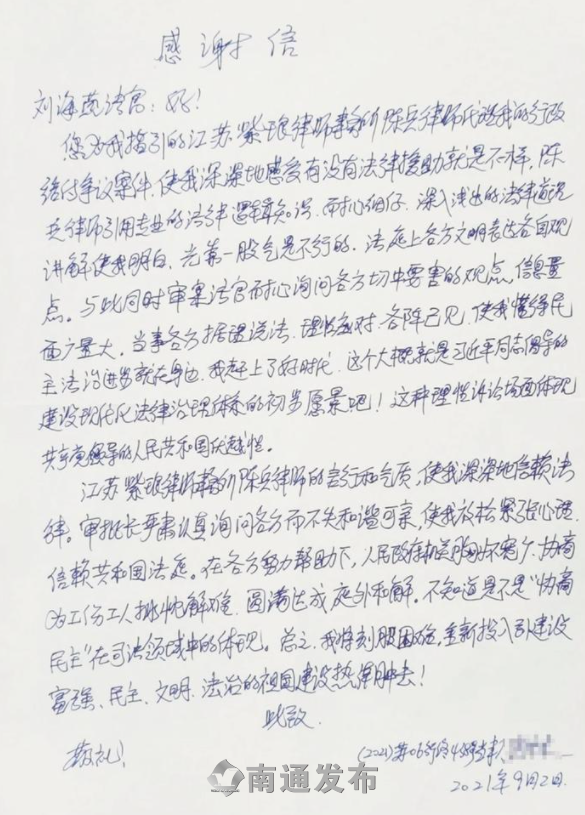 感谢信
刘海燕法官：好！
您为我指引的江苏紫琅律师事务所陈兵律师代理我的行政
给付争议案件，使我深深地感受有没有法律援助就是不一样，陈
兵律师引用专业的法律逻辑知识，耐心细仔、深入浅出的法律
讲解使我明白，光靠一股气是不行的，法庭上各方文明表达各自观
点。与此同时审案法官耐心询问各方切中要害的观点，信息量
面广量大，当事各方据理说法、理性应对、各陈己见，使我懂得民
主法治进步就在身边，我赶上了好时代，这个大概就是习近平同志倡导的
建设现代化法律治理体系的初步愿景吧！这种理性诉讼场面体现
共产党领导的人民共和国优越性。
江苏紫琅律师事务所陈兵律师的言行和气质，使我深深地信赖法
律。审批长严肃认真询问各方而不失和谐可亲，使我放松紧张心理，
信赖共和国法庭。在各方努力帮助下，人民政府机关协商
为工伤工人排忧解难，圆满达成庭外和解。不知道是不是“协商
民主”在司法领域中的体现。总之，我将克服困难，重新投入到建设
富强、民主、文明、法治的祖国建设热潮中去！
此致
敬礼！
(2021)苏06行终
2021年9月2日.
南通发布